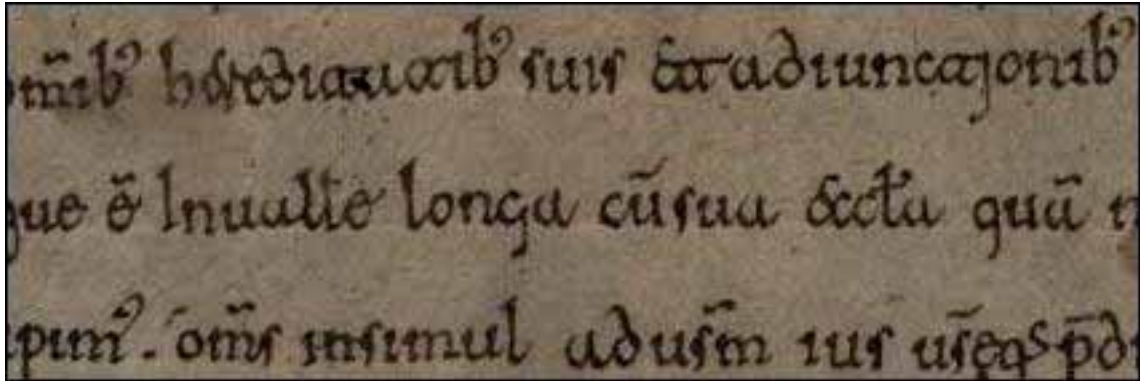 om̄ibꝰ hereditatibꝰ suis & adiunctionibꝰ
que ē Inualle longa cū sua &cc̄ła quā
pimꝰ . om̄s insimul adusm̄ ius